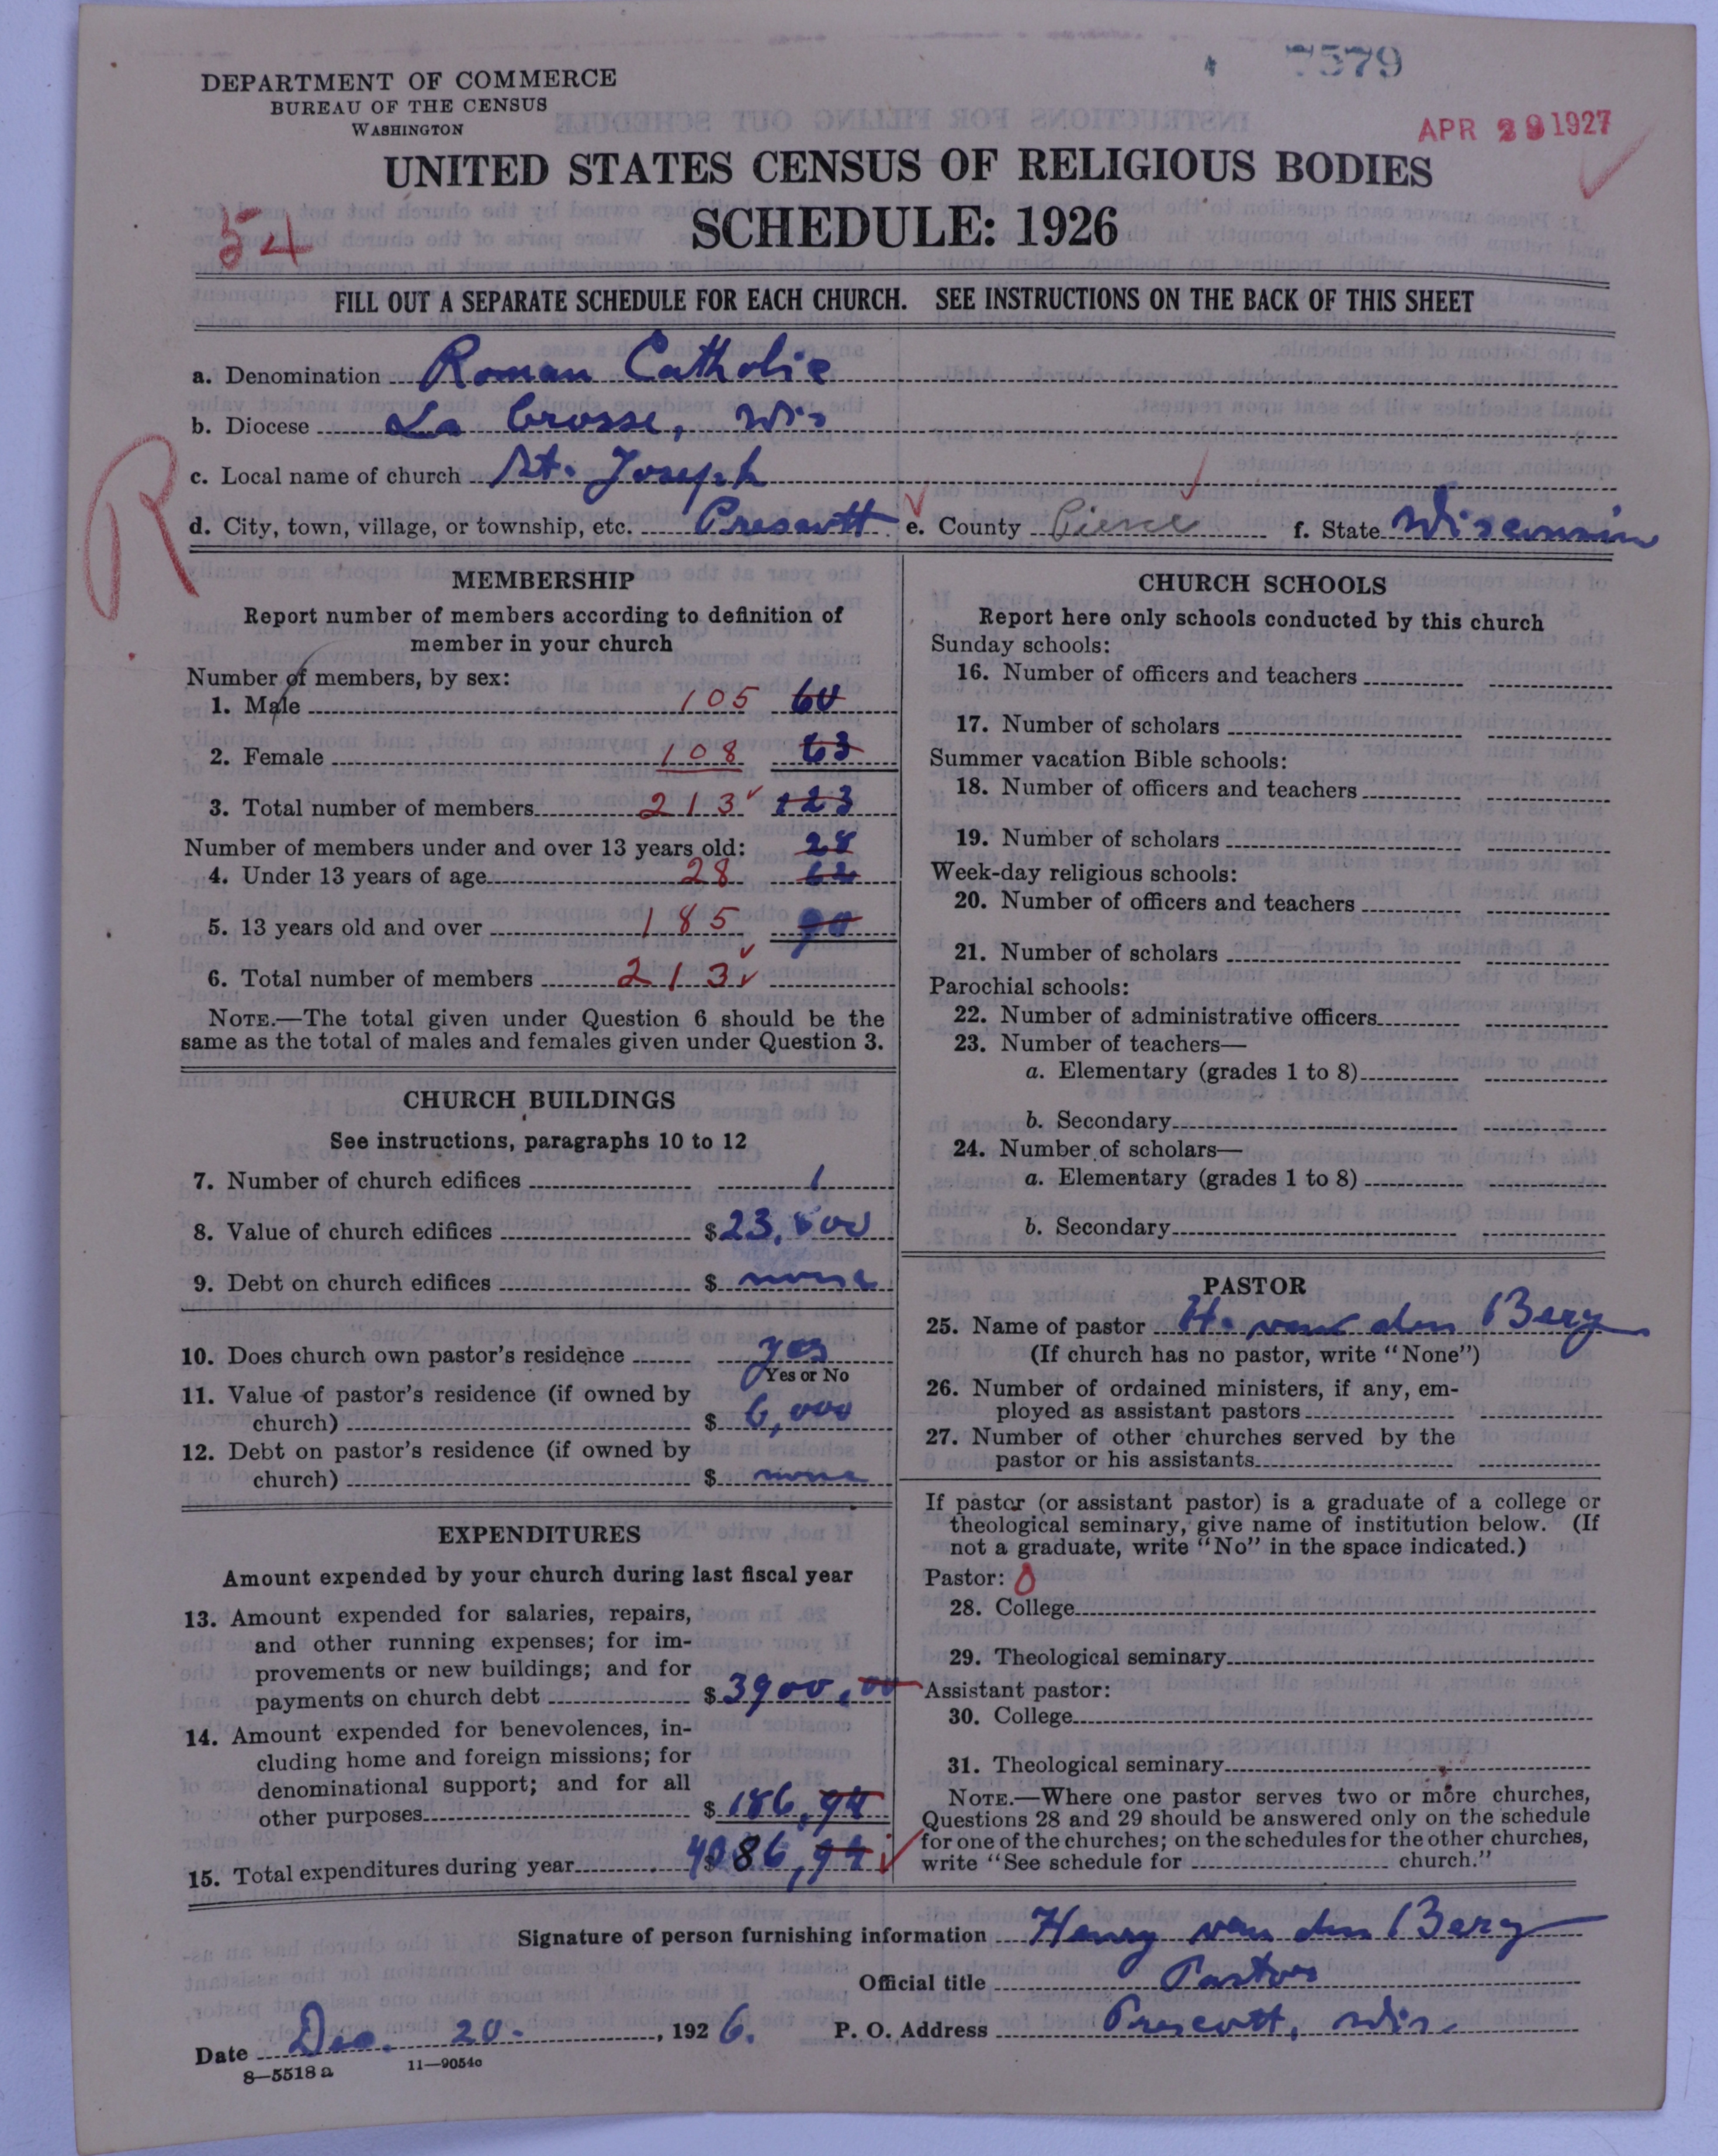 7579
APR 29 1927
DEPARTMENT OF COMMERCE
BUREAU OF THE CENSUS
WASHINGTON
UNITED STATES CENSUS OF RELIGIOUS BODIES
SCHEDULE: 1926
54
FILL OUT A SEPARATE SCHEDULE FOR EACH CHURCH. SEE INSTRUCTIONS ON THE BACK OF THIS SHEET
a. Denomination Roman Catholic
b. Diocese La Crosse, Wis
c. Local name of church St. Joseph
R
d. City, town, village, or township, etc. Prescott e. County Pierce f. State Wisconsin
MEMBERSHIP
Report number of members according to definition of
member in your church
Number of members, by sex:
1. Male 105 60
2. Female 108 63
3. Total number of members 213 123
Number of members under and over 13 years old: 28
4. Under 13 years of age 28
5. 13 years old and over 185 90
6. Total number of members 213
NOTE.—The total given under Question 6 should be the
same as the total of males and females given under Question 3.
CHURCH BUILDINGS
See instructions, paragraphs 10 to 12
7. Number of church edifices 1
8. Value of church edifices $
9. Debt on church edifices $ none
10. Does church own pastor's residence yes
Yes or No
11. Value of pastor's residence (if owned by
church) $ 6,000
12. Debt on pastor's residence (if owned by
church) $ none
EXPENDITURES
Amount expended by your church during last fiscal year
13. Amount expended for salaries, repairs,
and other running expenses; for im-
provements or new buildings; and for
payments on church debt $ 3900,00
14. Amount expended for benevolences, in-
cluding home and foreign missions; for
denominational support; and for all
other purposes $ 186,94
15. Total expenditures during year $ 4086,94
CHURCH SCHOOLS
Report here only schools conducted by this church
Sunday schools:
16. Number of officers and teachers
17. Number of scholars
Summer vacation Bible schools:
18. Number of officers and teachers
19. Number of scholars
Week-day religious schools:
20. Number of officers and teachers
21. Number of scholars
Parochial schools:
22. Number of administrative officers
23. Number of teachers—
a. Elementary (grades 1 to 8)
b. Secondary
24. Number of scholars—
a. Elementary (grades 1 to 8)
b. Secondary
PASTOR
25. Name of pastor H. van den Berg
(If church has no pastor, write "None")
26. Number of ordained ministers, if any, em-
ployed as assistant pastors
27. Number of other churches served by the
pastor or his assistants
If pastor (or assistant pastor) is a graduate of a college or
theological seminary, give name of institution below. (If
not a graduate, write "No" in the space indicated.)
Pastor: 0
28. College
29. Theological seminary
Assistant pastor:
30. College
31. Theological seminary
NOTE.—Where one pastor serves two or more churches,
Questions 28 and 29 should be answered only on the schedule
for one of the churches; on the schedules for the other churches,
write "See schedule for church."
Signature of person furnishing information Henry van den Berg
Official title Pastor
Date Dec. 20. , 1926. P. O. Address Prescott, Wis.
8—5518 a 11—9054c